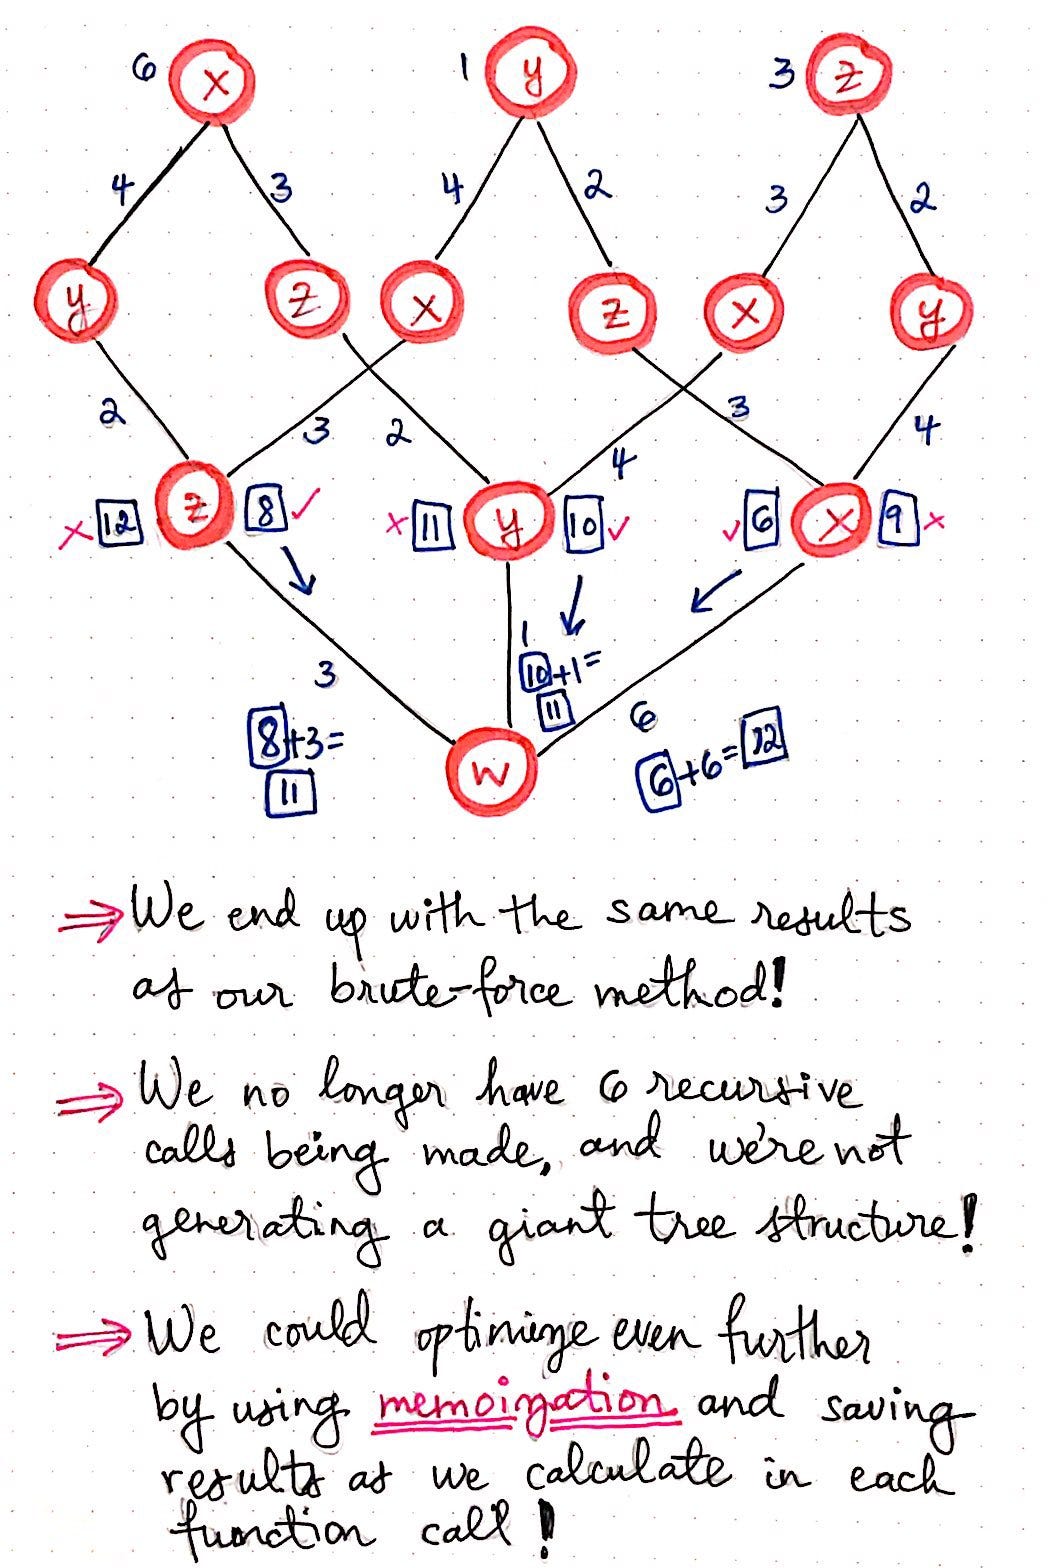 6 x 1 y 3 z
4 3 4 2 3 2
y z x z x y
2 3 2 4 3 4
× 12 z 8 ✓ × 11 y 10 ✓ ✓ 6 x 9 ×
3 1 6
8+3=
11
10+1=
11
6+6=12
w
⇒ We end up with the same results
as our brute-force method!
⇒ We no longer have 6 recursive
calls being made, and we're not
generating a giant tree structure!
⇒ We could optimize even further
by using memoization and saving
results as we calculate in each
function call!